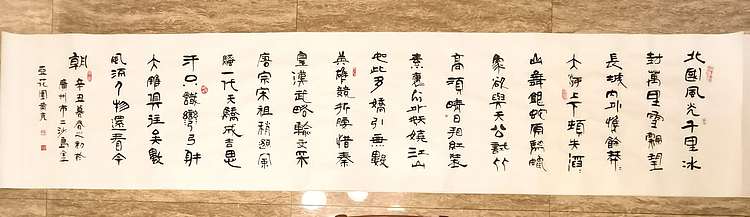 北國風光千里冰
封萬里雪飄望
長城内外惟餘莽〻
大河上下頓失滔〻
山舞銀蛇原馳蠟
象欲與天公試比
高須晴日看紅裝
素裹分外妖嬈江山
如此多嬌引無數
英雄競折腰惜秦
皇漢武略輸文采
唐宗宋祖稍遜風
騷一代天驕成吉思
汗只識彎弓射
大雕俱往矣數
風流人物還看今
朝
辛丑暮春之初於
廣州市二沙島金
亞花園黃